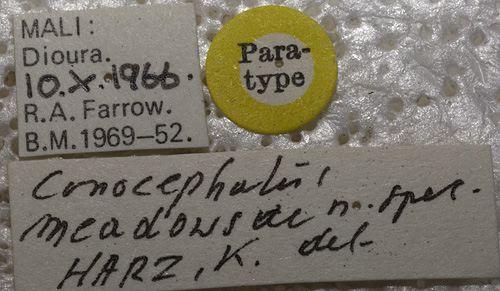 MALI:
Dioura.
10.X.1966.
R.A. Farrow.
B.M.1969–52.
Para-
type
Conocephalus
meadowsae n. spec.
HARZ, K. det.